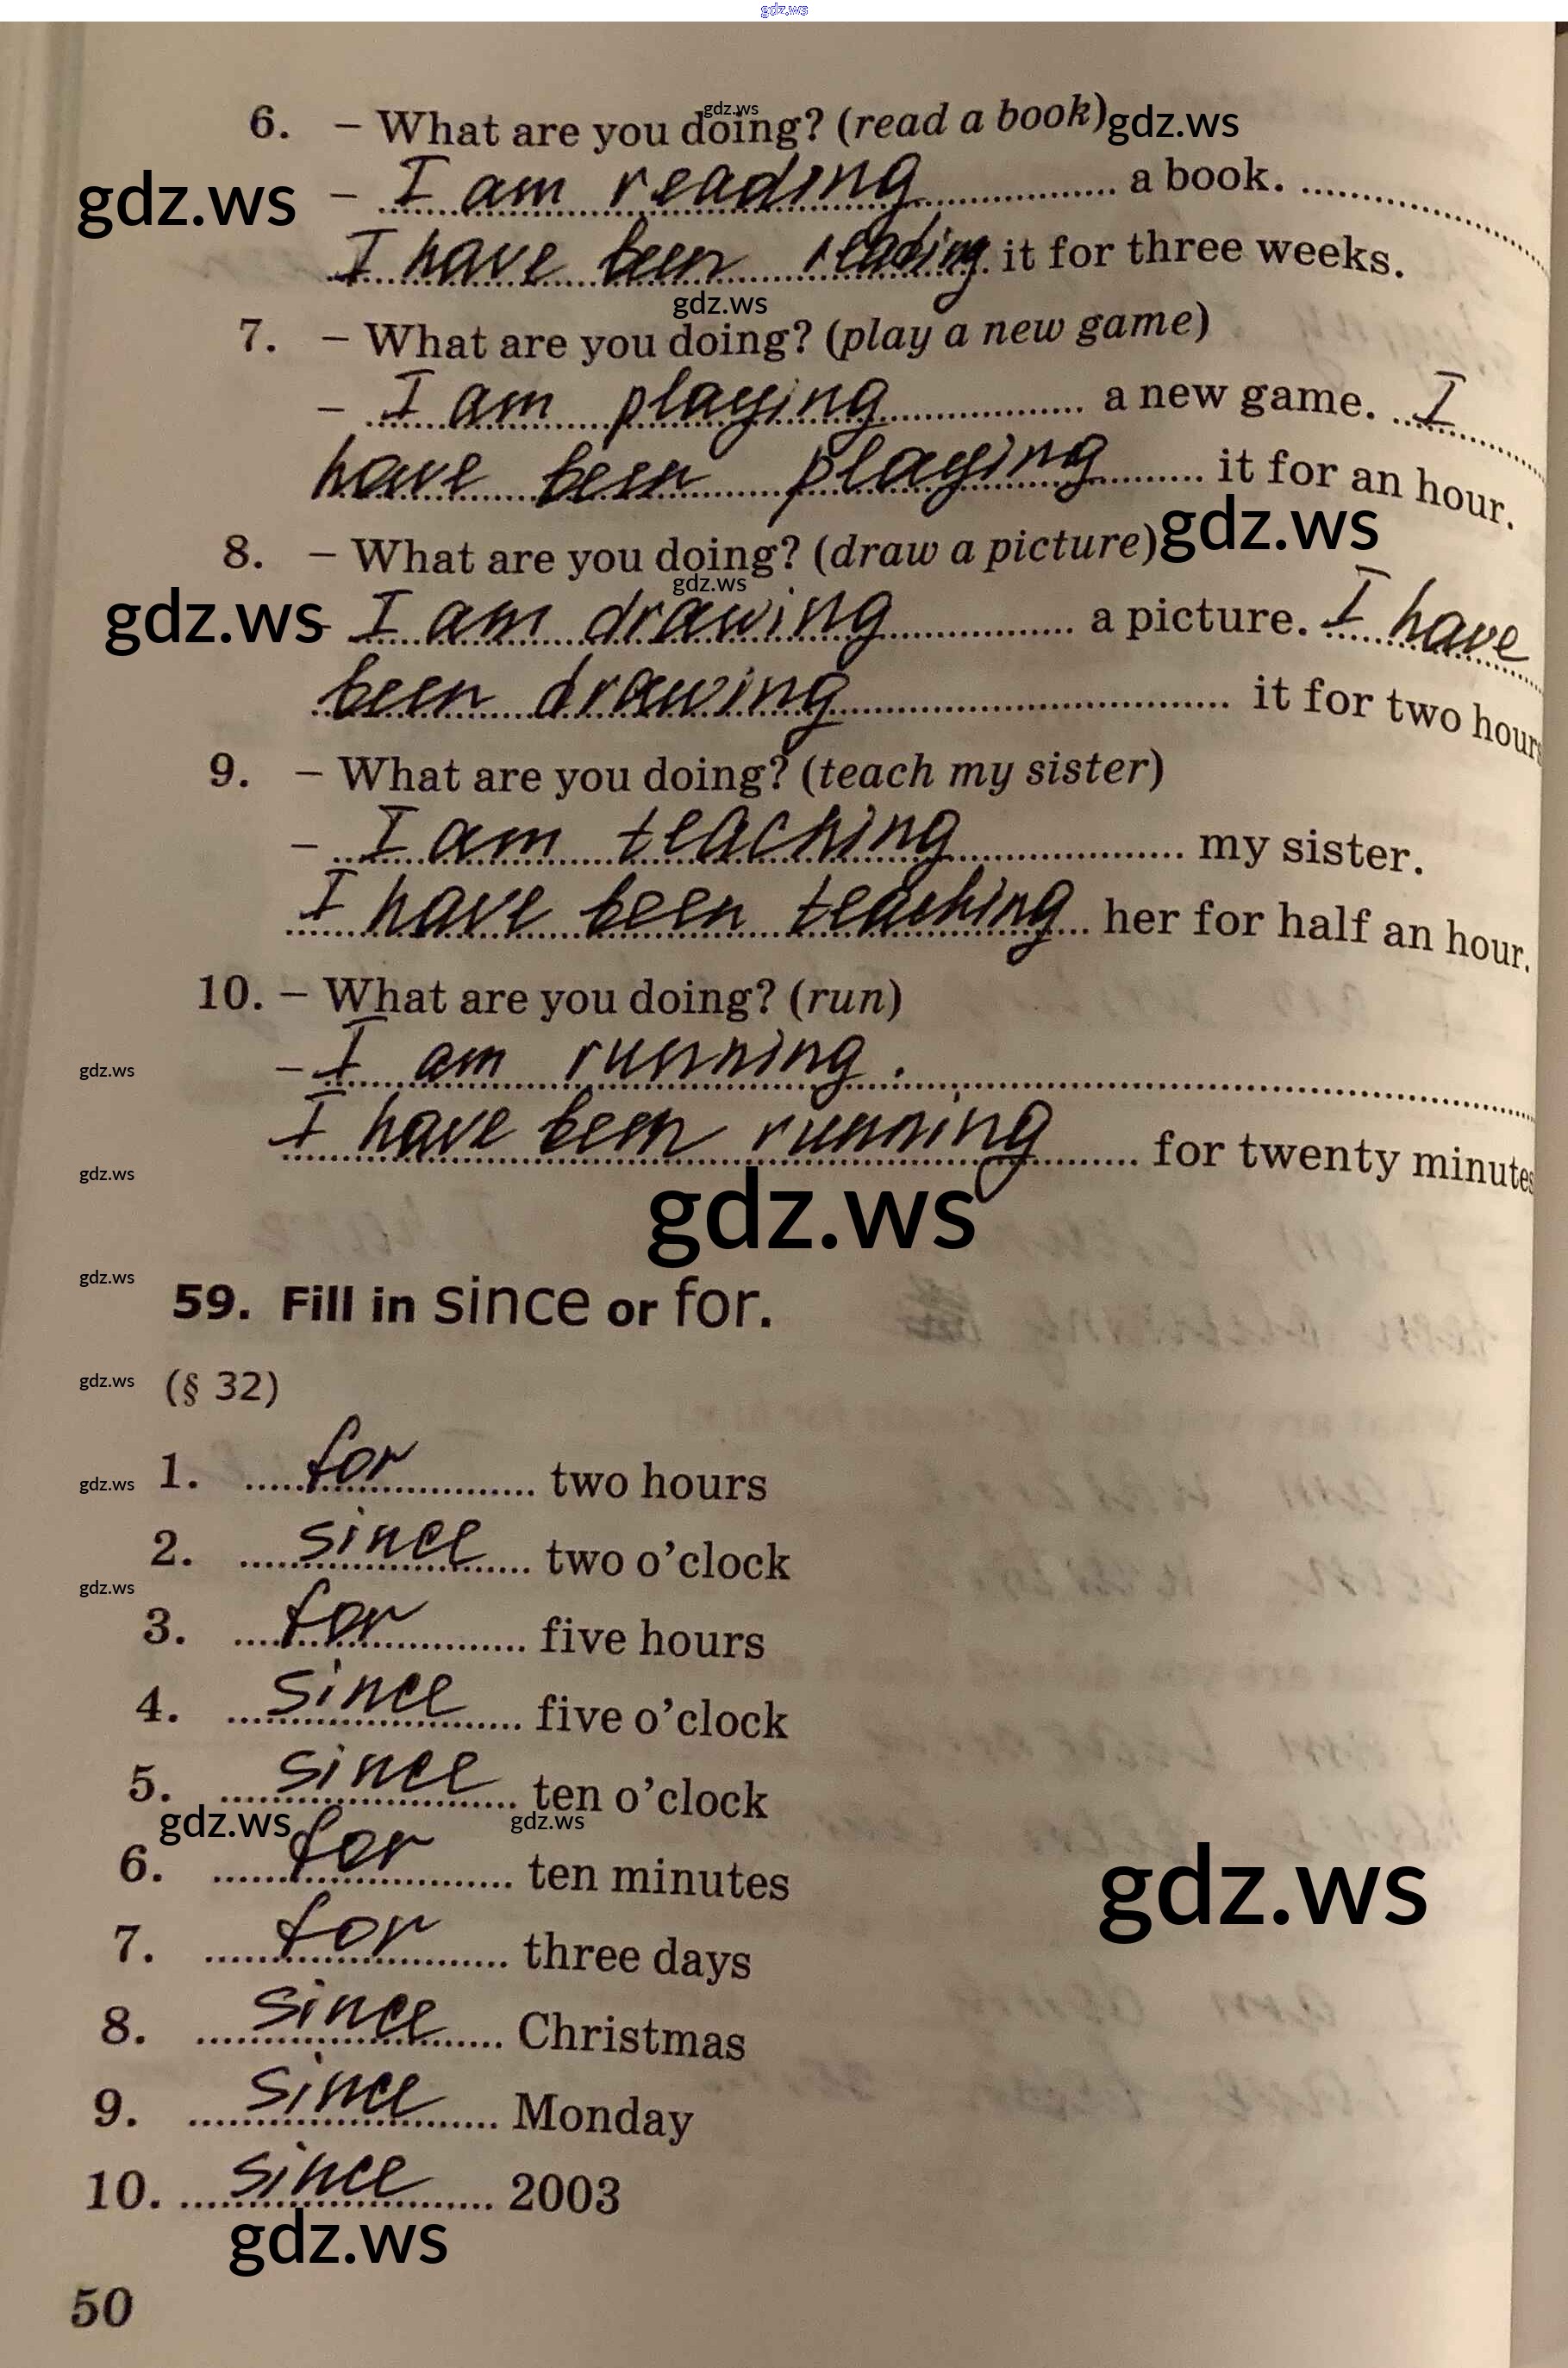 gdz.ws
6. – What are you doing? (read a book) gdz.ws
gdz.ws
gdz.ws – I am reading a book.
I have been reading it for three weeks.
gdz.ws
7. – What are you doing? (play a new game)
– I am playing a new game. I
have been playing it for an hour.
8. – What are you doing? (draw a picture) gdz.ws
gdz.ws
gdz.ws – I am drawing a picture. I have
been drawing it for two hours
9. – What are you doing? (teach my sister)
– I am teaching my sister.
I have been teaching her for half an hour.
10. – What are you doing? (run)
gdz.ws – I am running.
I have been running for twenty minutes
gdz.ws
gdz.ws
gdz.ws
59. Fill in since or for.
gdz.ws (§ 32)
gdz.ws 1. for two hours
2. since two o’clock
gdz.ws
3. for five hours
4. since five o’clock
5. since ten o’clock
gdz.ws gdz.ws
6. for ten minutes
gdz.ws
7. for three days
8. since Christmas
9. since Monday
10. since 2003
gdz.ws
50